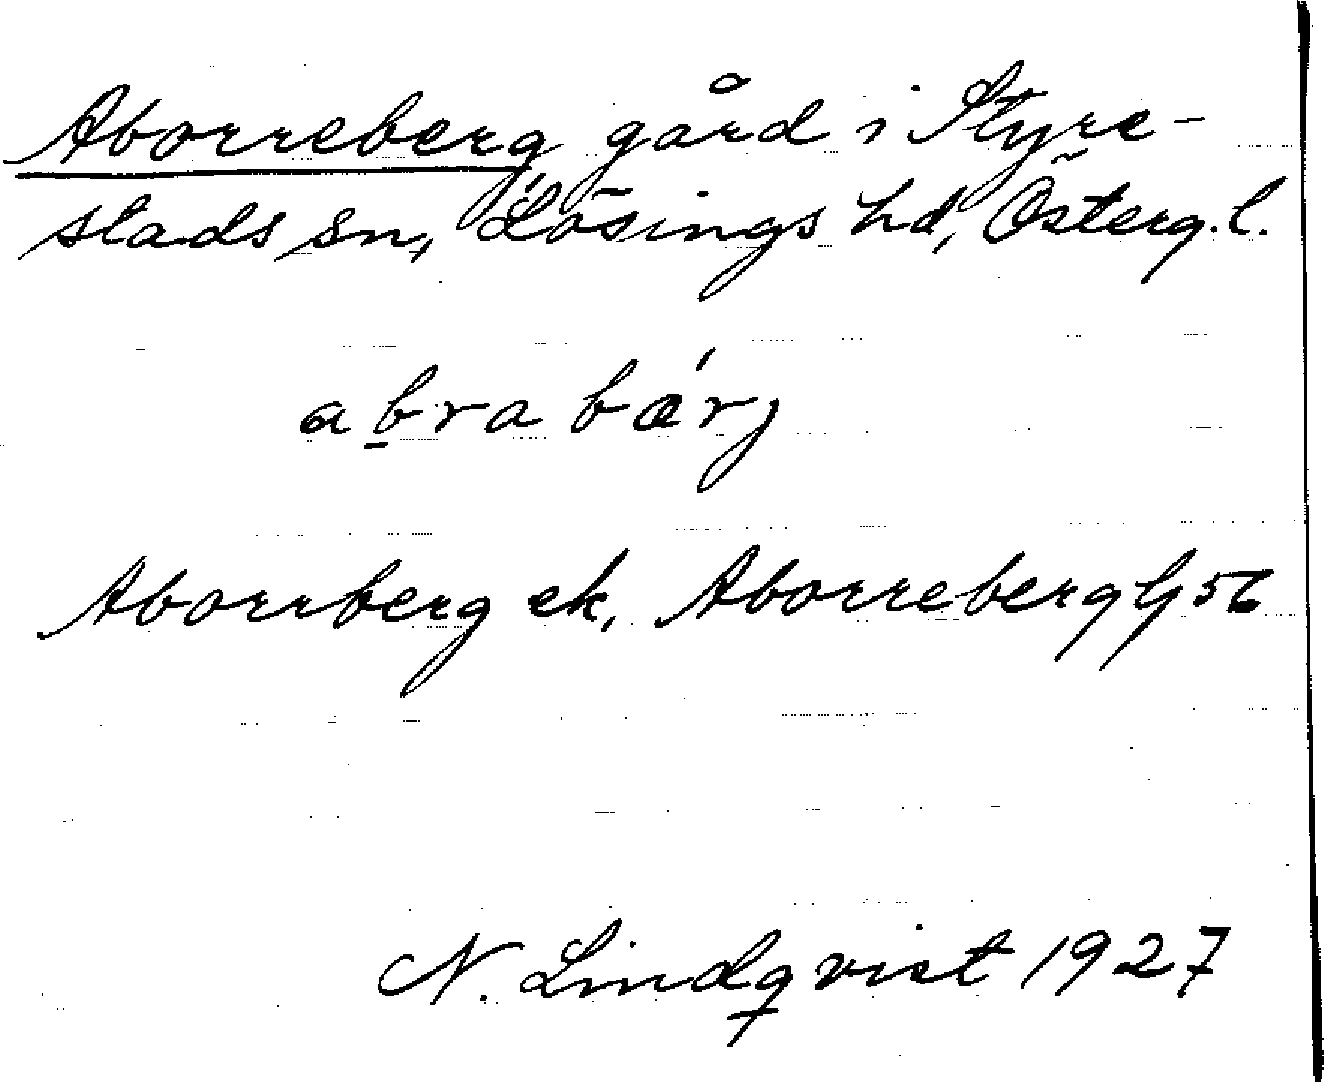 Aborreberg gård i Styre-
stads sn, Lösings hd, Österg.l.
abra bärj
Aborrberg ek, Aborreberg Gj 56
N. Lindqvist 1927